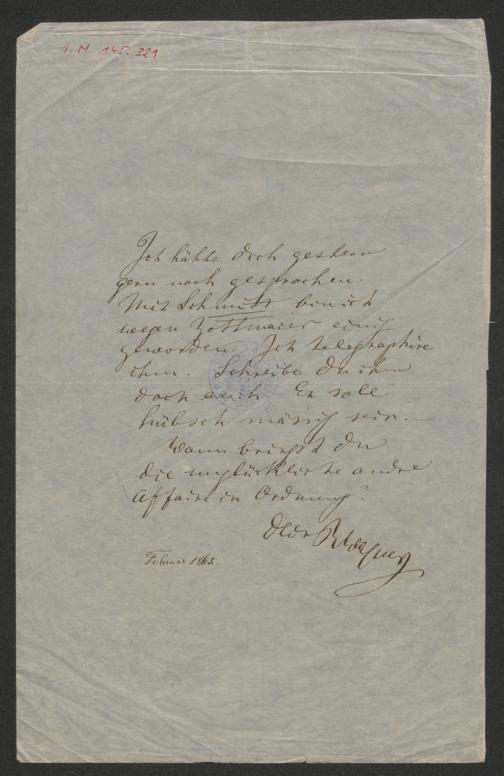 I. N. 145.321
Ich hätte Dich gestern
gern noch gesprochen.
Mit Schmitt bin ich
wegen Zottmaier einig
geworden. Ich telegraphire
ihm. Schreibe Du ihm
doch auch. Er solle
hübsch mässig sein. –
Wann bringst Du
die unglückliche andre
Affaire in Ordnung?
Dein RWagner
Februar 1865.